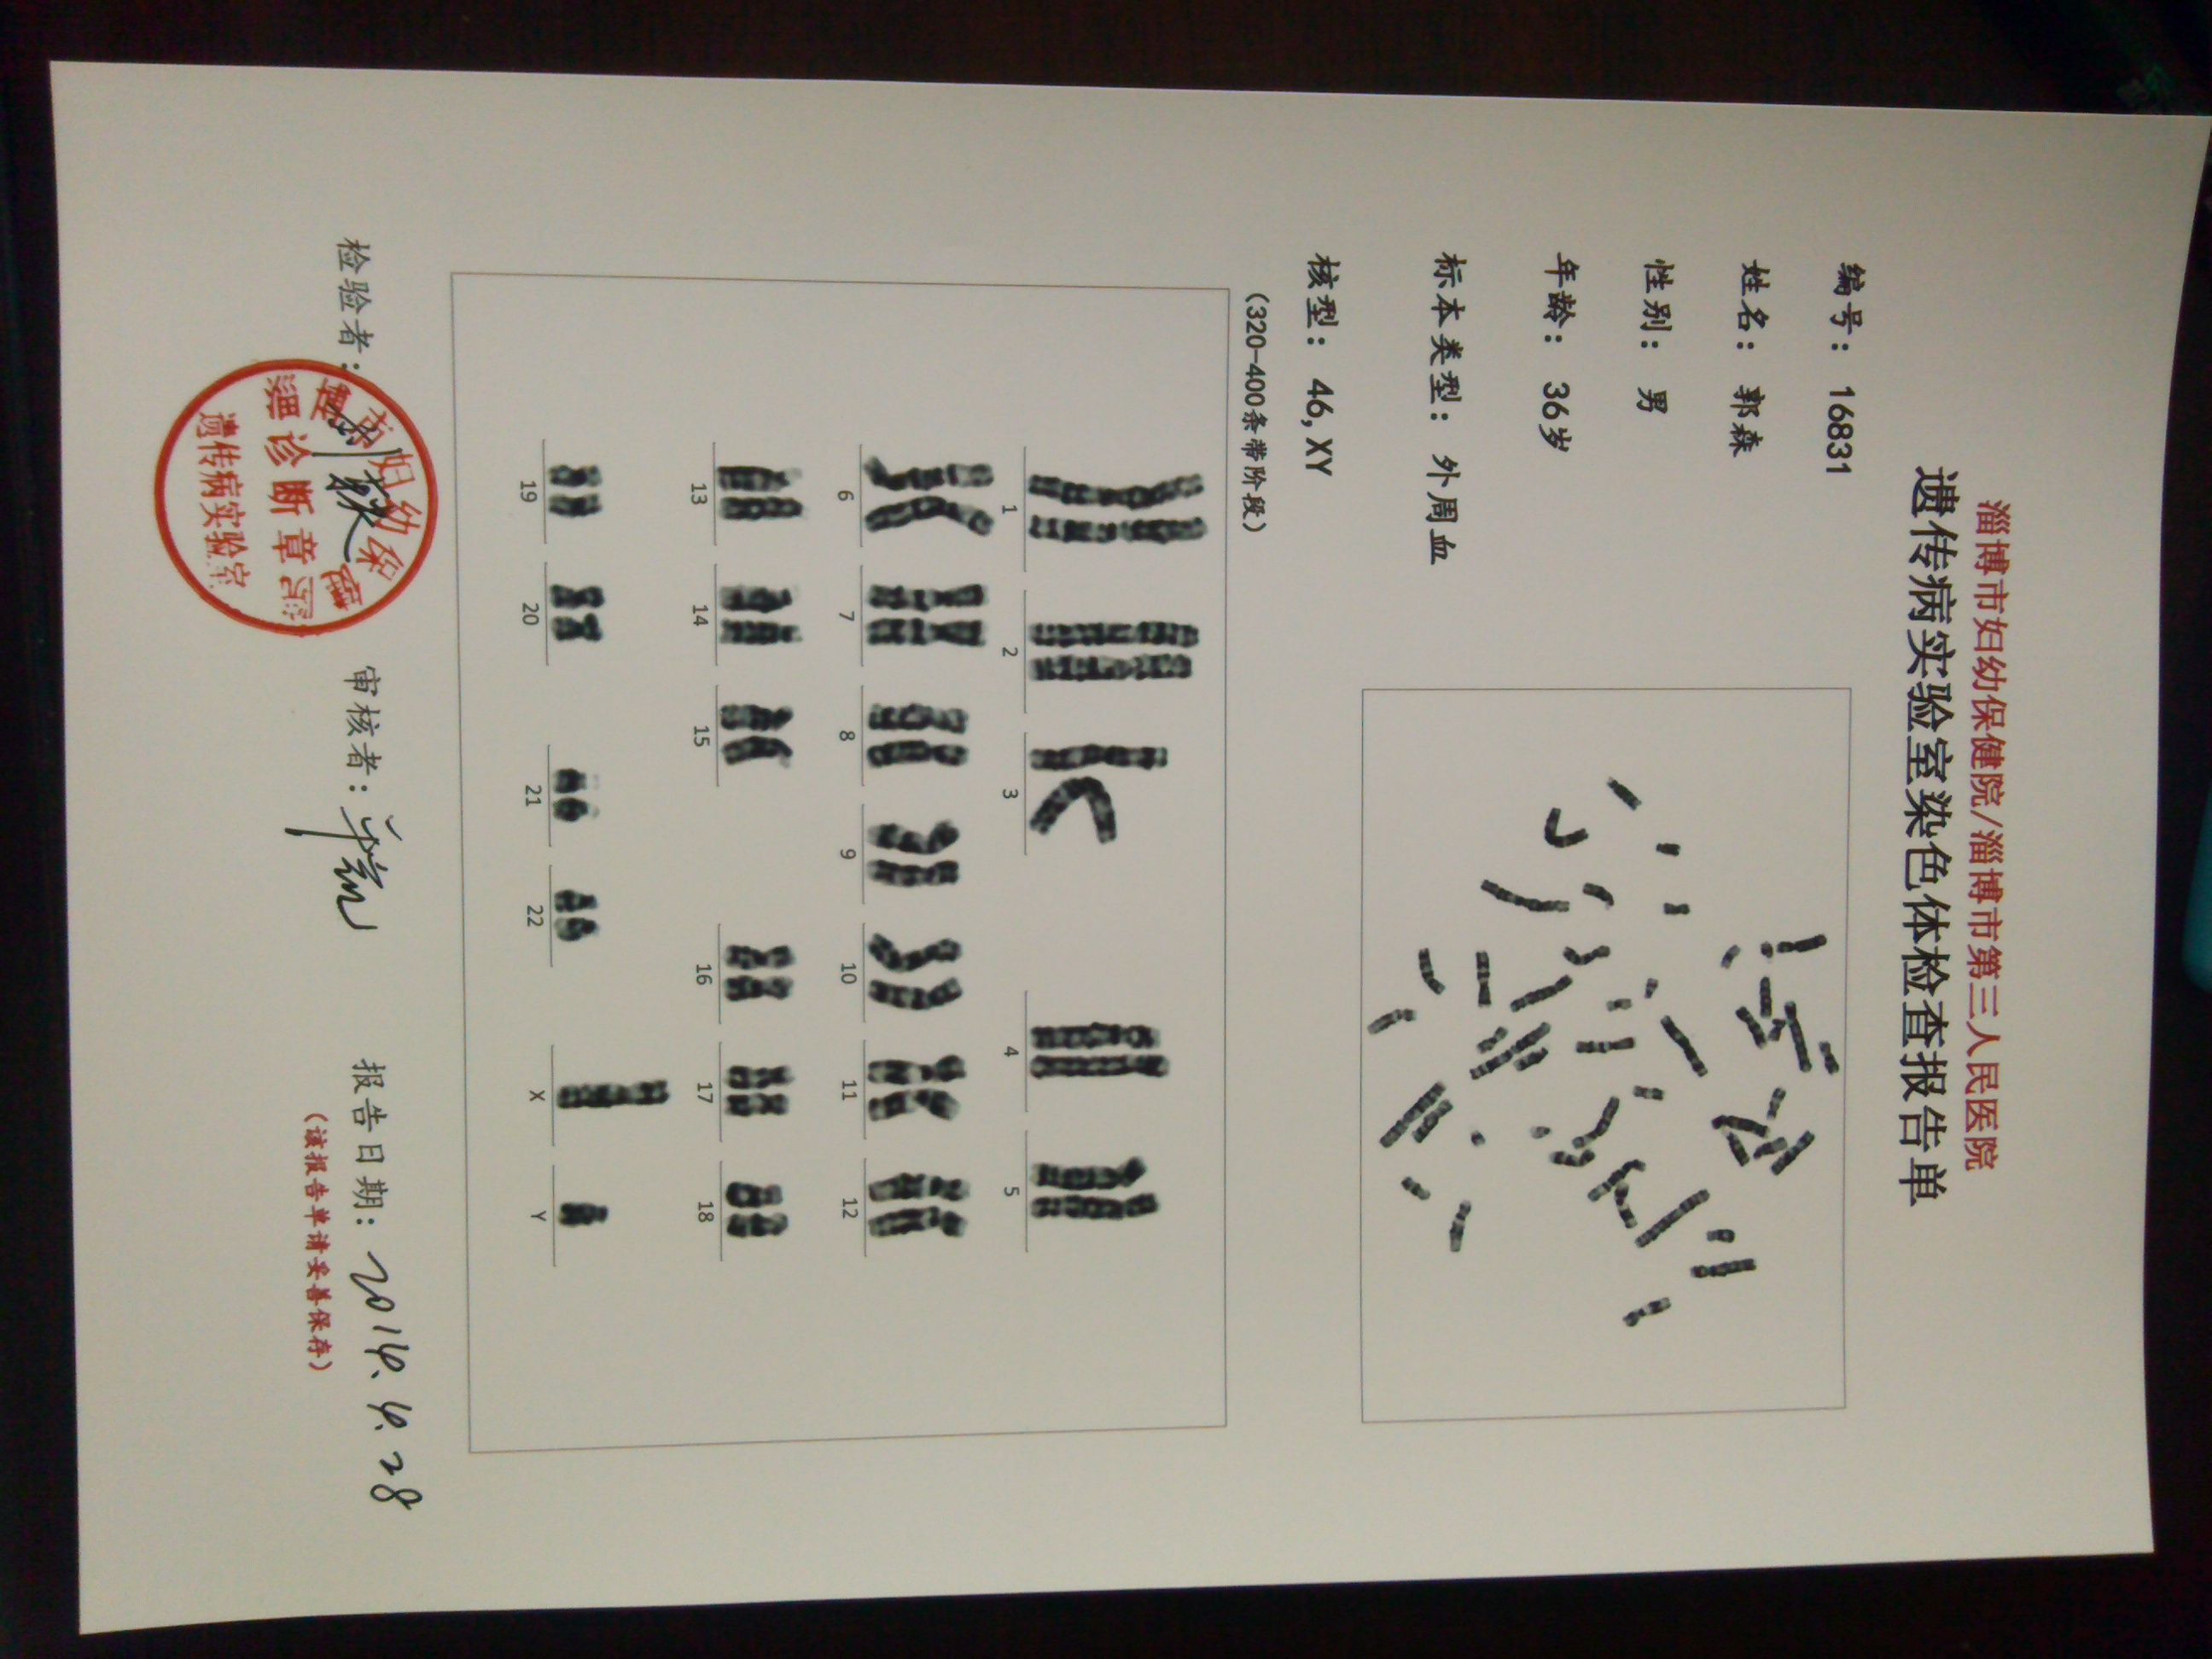 淄博市妇幼保健院/淄博市第三人民医院
遗传病实验室染色体检查报告单
编号： 16831
姓名： 郭森
性别： 男
年龄： 36岁
标本类型： 外周血
核型： 46,XY
(320-400条带阶段)
1 2 3 4 5
6 7 8 9 10 11 12
13 14 15 16 17 18
19 20 21 22 X Y
检验者： 审核者： 报告日期： 2014.4.28
(该报告单请妥善保存)
诊断章
遗传病实验室